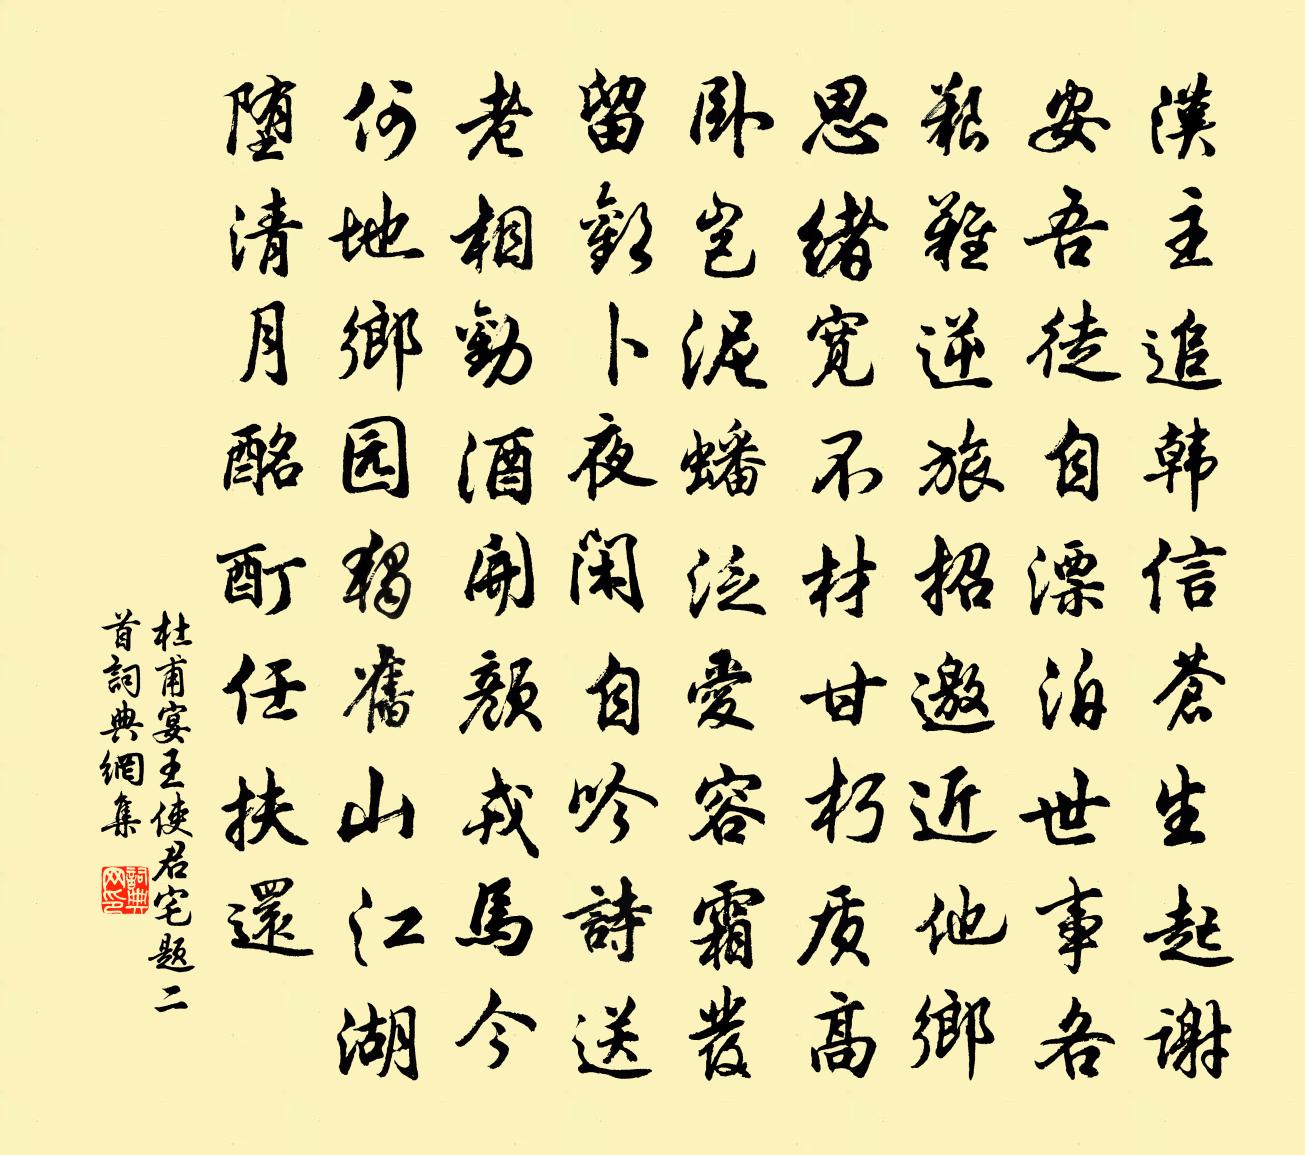 漢主追韩信蒼生起谢
安吾徒自漂泊世事各
艱難逆旅招邀近他鄉
思緒宽不材甘朽质高
卧岂泥蟠泛愛容霜發
留歡卜夜闲自吟詩送
老相勸酒開颜戎馬今
何地鄉园獨舊山江湖
堕清月酩酊任扶還
杜甫宴王使君宅题二
首詞典網集
詞典网印